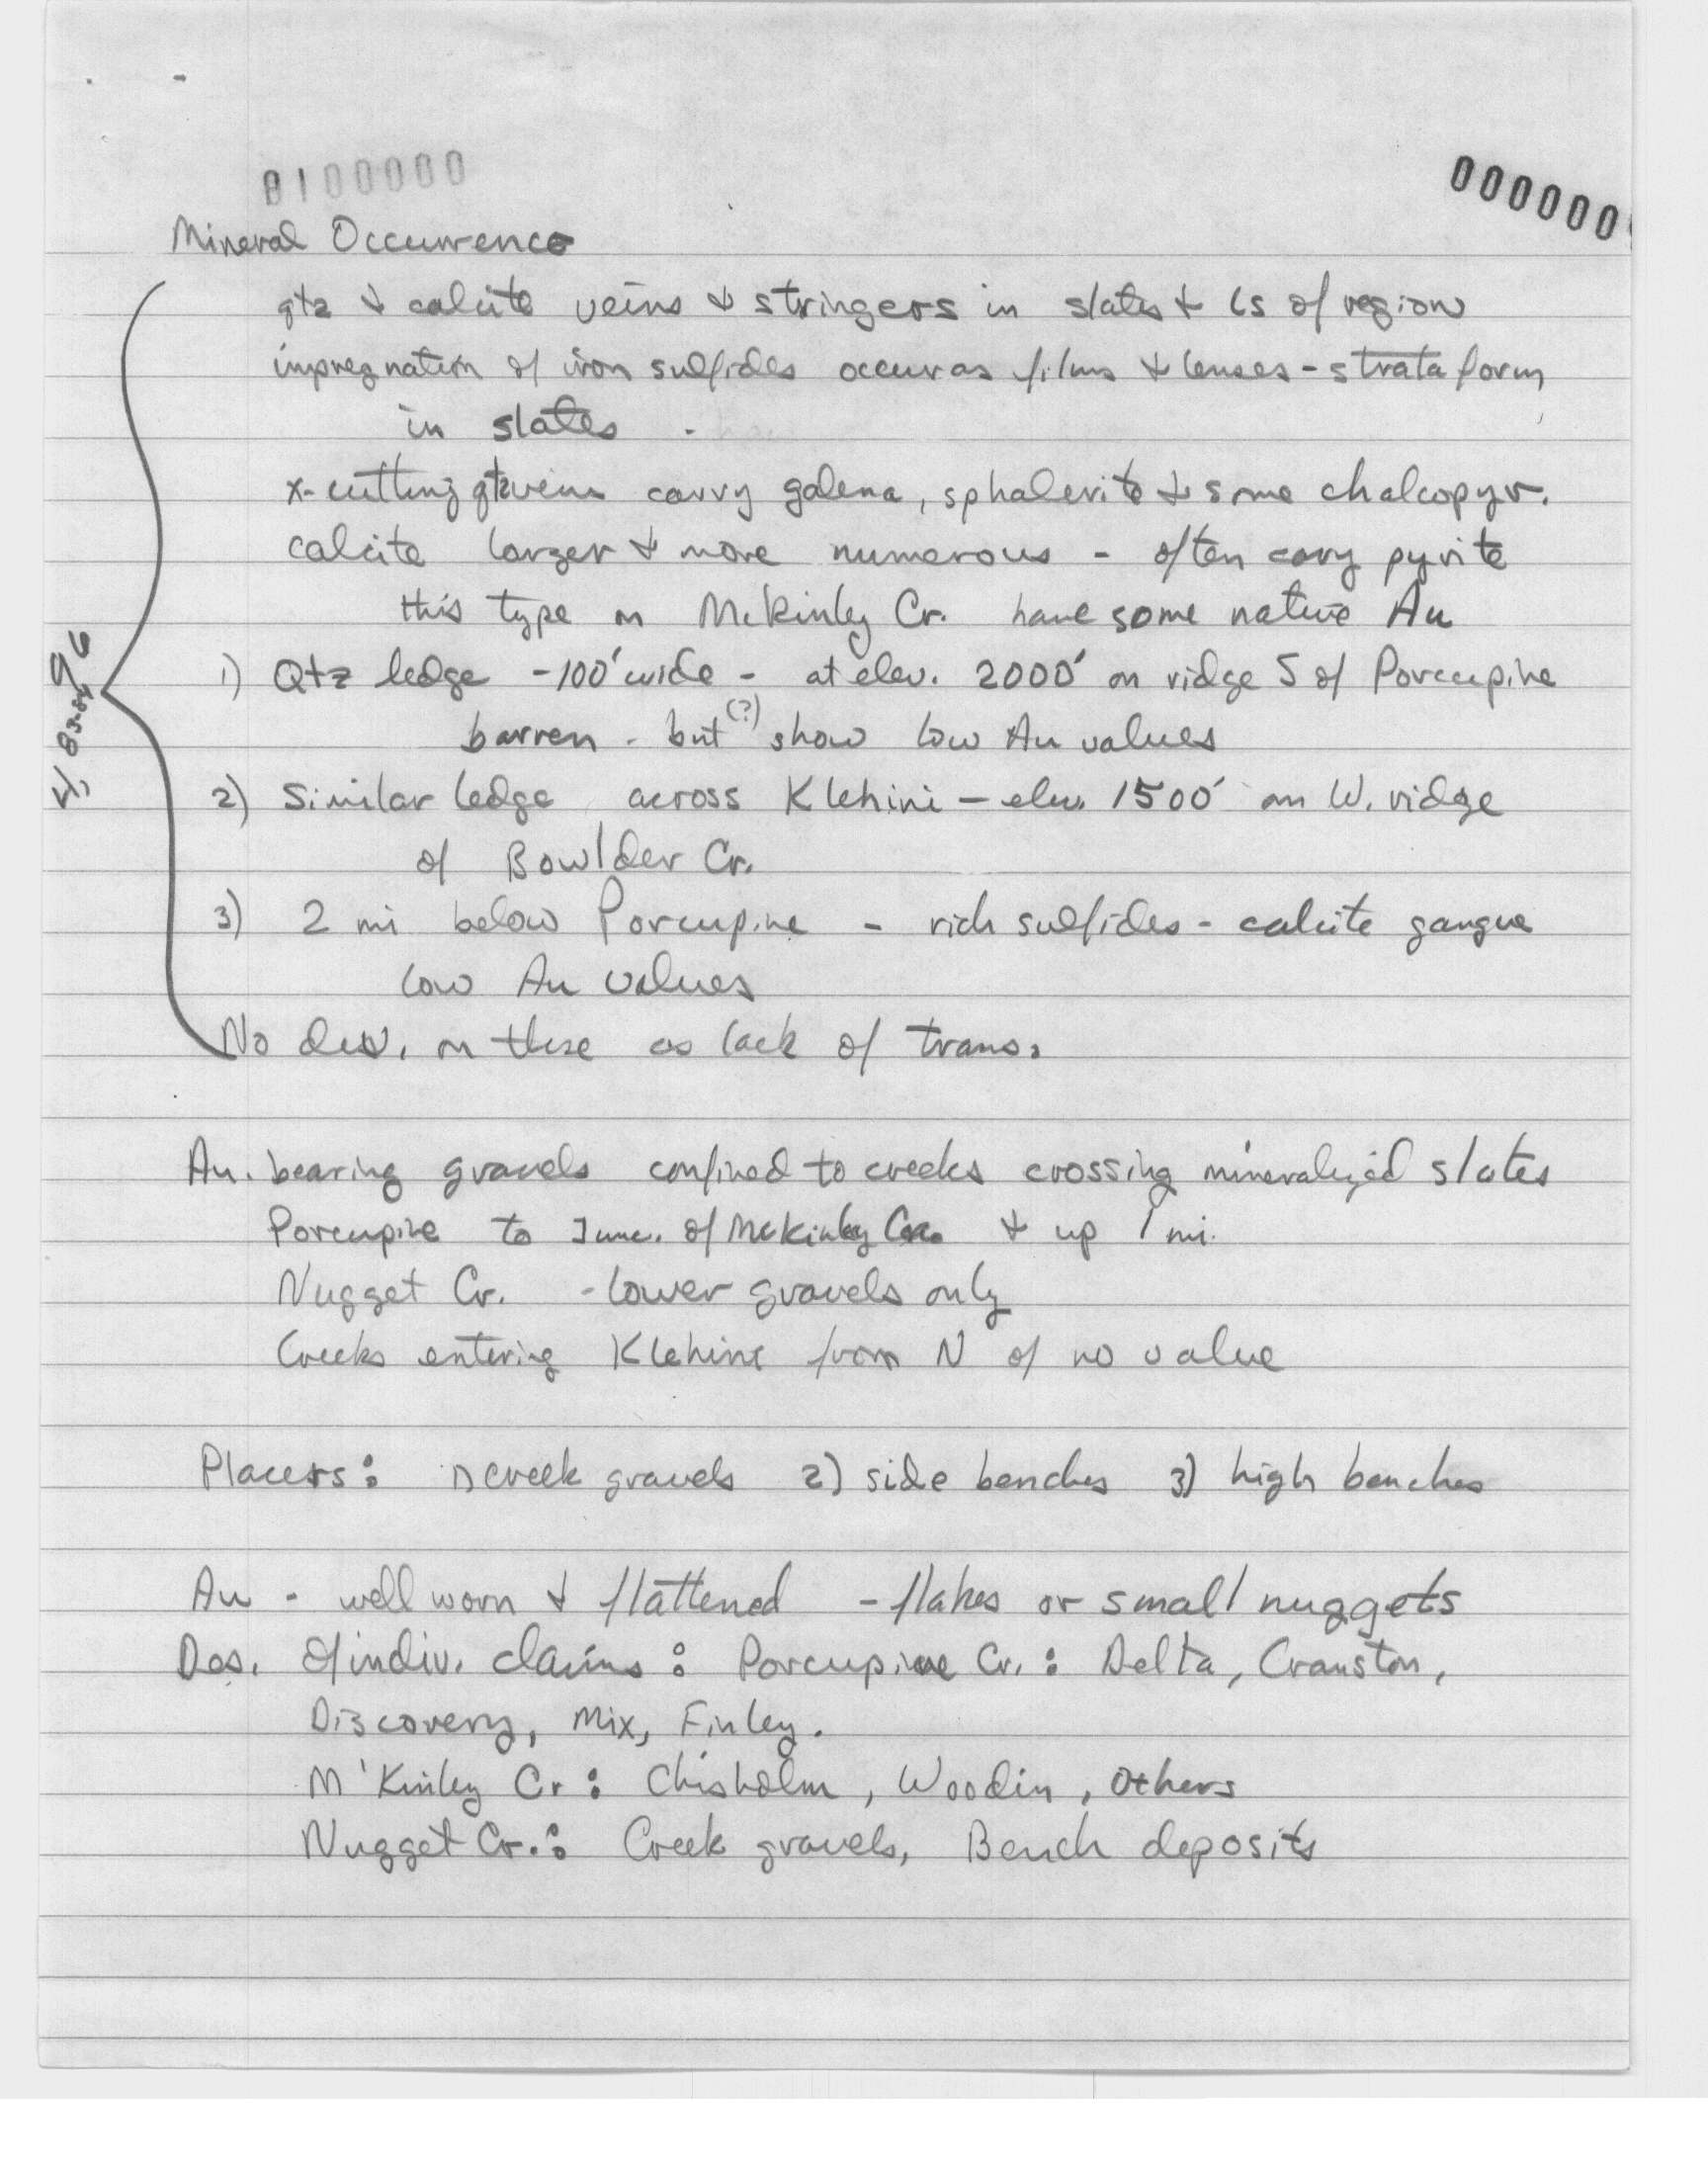 0100000
000000
Mineral Occurrence
qtz & calcite veins & stringers in slates & ls of region
impregnation of iron sulfides occur as films & lenses - strata form
in slates .
x-cutting qtz veins carry galena, sphalerite & some chalcopyr.
calcite larger & more numerous - often carry pyrite
this type on McKinley Cr. have some native Au
1) Qtz ledge - 100' wide - at elev. 2000' on ridge S of Porcupine
barren - but (?) show low Au values
2) Similar ledge across Klehini - elev. 1500' on W. ridge
of Bowlder Cr.
3) 2 mi below Porcupine - rich sulfides - calcite gangue
low Au values
No dev. on these as lack of trans.
Au. bearing gravels confined to creeks crossing mineralized slates
Porcupine to Junc. of McKinley Cr. & up 1 mi.
Nugget Cr. - lower gravels only
Creeks entering Klehini from N of no value
Placers: 1) creek gravels 2) side benches 3) high benches
Au - well worn & flattened - flakes or small nuggets
Des. of indiv. claims: Porcupine Cr.: Delta, Cranston,
Discovery, Mix, Finley.
M'Kinley Cr: Chisholm, Woodin, others
Nugget Cr.: Creek gravels, Bench deposits